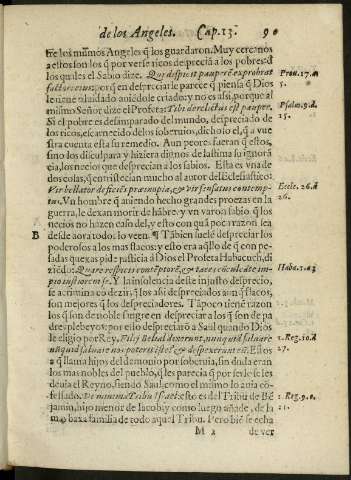 de los Angeles. Cap.13. 90
tre los mismos Angeles q̃ los guardaron. Muy cercanos
a estos son los q̃ por verse ricos desprecia a los pobres: d
los quales el Sabio dize. Qui despicit pauperẽ exprobrat
Prou. 17. a
factori eius; porq̃ en despreciarle parece q̃ piensa q̃ Dios
5.
le tiene oluidado auiẽdole criado; y no es assi, porque al
mismo Señor dize el Profeta: Tibi derelictus est pauper.
Psalm. 9. d.
Si el pobre es desamparado del mundo, despreciado de
15.
los ricos, escarnecido de los soberuios, dicho io el, q̃ a vue
stra cuenta esta su remedio. Aun peores fueran q̃ estos,
sino los disculpara y hiziera dignos de lastima su ignorã
cia, los necios que desprecian a los sabios. Esta es vna de
dos colas, que entristecian mucho al autor del Eclesiastico:
Vir bellator deficiẽs præ inopia, & vir sensatus contemp-
Eccle. 26. d
tus. Vn hombre q̃ auiendo hecho grandes proezas en la
26.
guerra, le dexan morir de hãbre, y vn varon sabio q̃ los
necios no hazen caso del, y esto con quã poca razon sea
B
desde aora todo; lo veen. ¶ Tãbien suelẽ despreciar los
poderosos a los mas flacos; y esto era aq̃llo de q̃ con pe-
sadas quexas pide justicia á Dios el Profeta Habacuch, di
ziẽdo: Quare respicis contẽptores, & taces cõculcãte im-
Haba. 1. a 3
pio iustiorem se. Y la insolencia deste injusto desprecio,
se acrimina cõ dezir, q̃ los assi despreciados aunq̃ flacos,
son mejores q̃ los despreciadores. Tãpoco tiene razon
los q̃ son de noble sangre en despreciar a los q̃ son de pa
dres plebeyos: por esso despreciarõ a Saul quando Dios
le eligio por Rey. Filij Belial dixerunt, nunquid saluare
1. Reg. 10. d
nos poterit iste? & despexerunt eũ. Estos
27.
a q̃ llama hijos del demonio por soberuia, sin duda eran
los mas nobles del pueblo, q̃ les parecia q̃ por serlo se les
deuia el Reyno, siendo Saul, como el mismo lo auia cõ-
fessado. De minima Tribu Israel: esto es del Tribu de Bẽ
1. Reg. 9. c.
jamin, hijo menor de Iacob; y como luego añade, de la
21.
mas baxa familia de todo aquel Tribu. Pero biẽ se echa
M 2 de ver